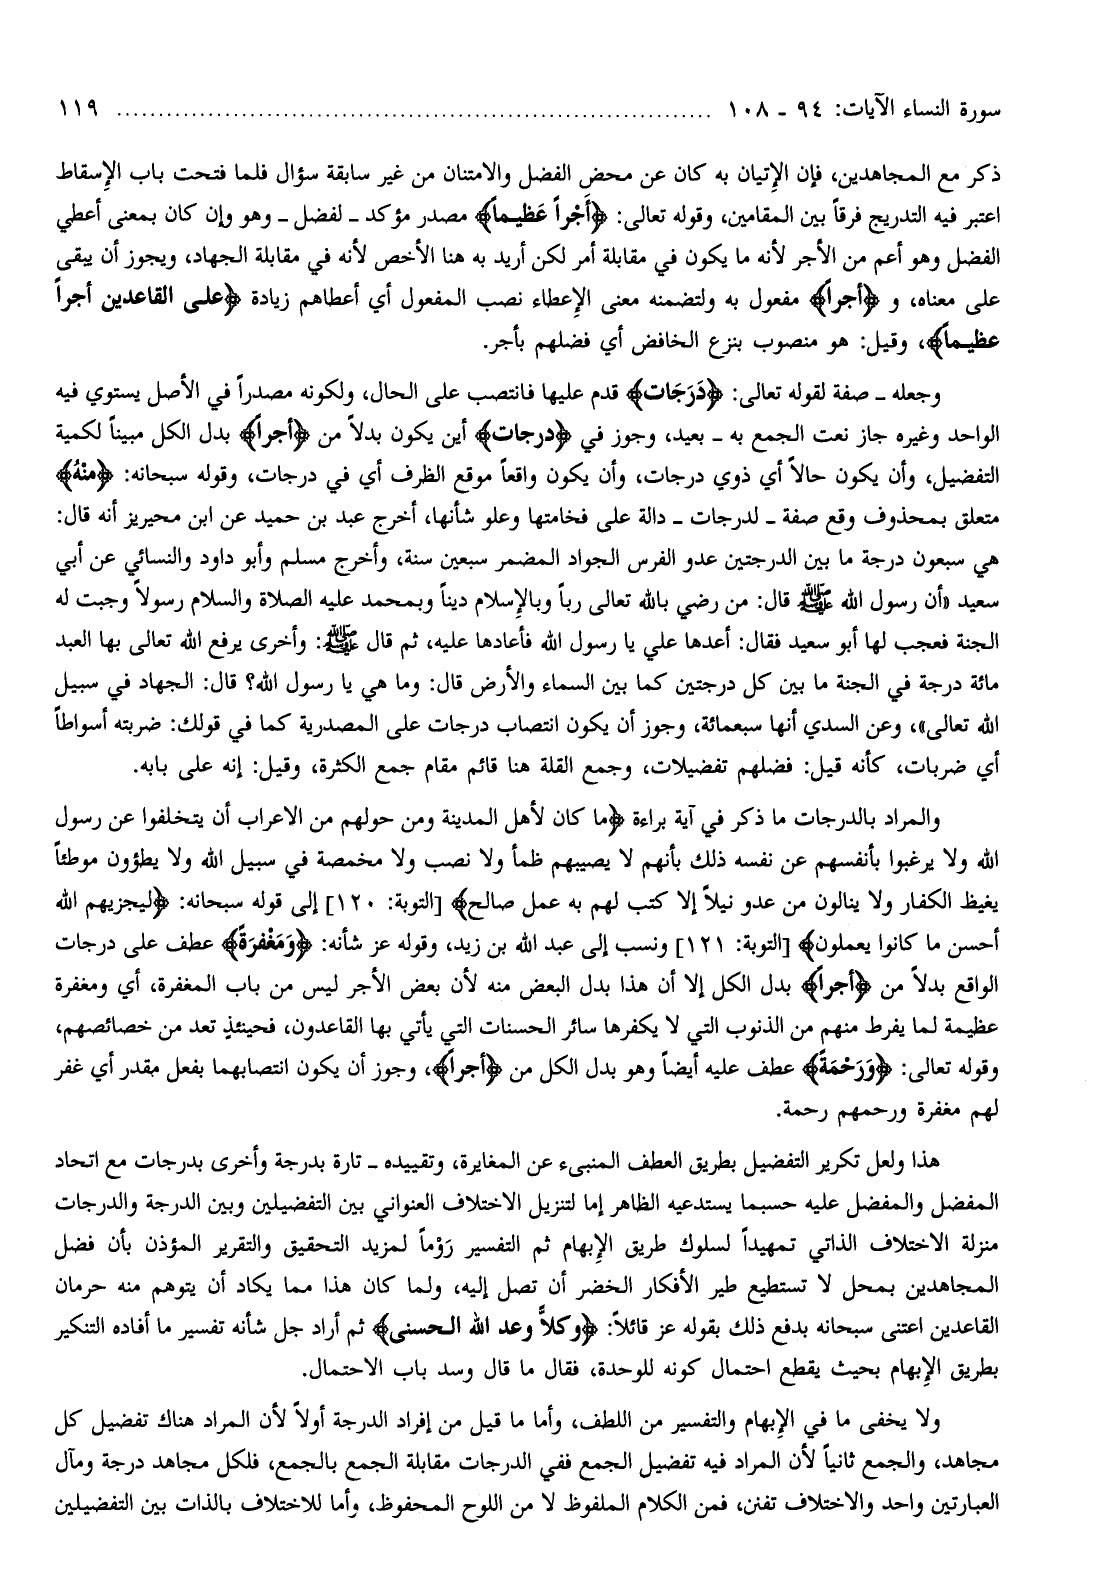 سورة النساء الآيات: ٩٤ ـ ١٠٨ ........................................................................ ١١٩
ذكر مع المجاهدين، فإن الإتيان به كان عن محض الفضل والامتنان من غير سابقة سؤال فلما فتحت باب الإسقاط
اعتبر فيه التدريج فرقاً بين المقامين، وقوله تعالى: ﴿أَجْراً عَظيماً﴾ مصدر مؤكد ـ لفضل ـ وهو وإن كان بمعنى أعطي
الفضل وهو أعم من الأجر لأنه ما يكون في مقابلة أمر لكن أريد به هنا الأخص لأنه في مقابلة الجهاد، ويجوز أن يبقى
على معناه، و ﴿أجراً﴾ مفعول به ولتضمنه معنى الإعطاء نصب المفعول أي أعطاهم زيادة ﴿على القاعدين أجراً
عظيماً﴾، وقيل: هو منصوب بنزع الخافض أي فضلهم بأجر.
وجعله ـ صفة لقوله تعالى: ﴿دَرَجات﴾ قدم عليها فانتصب على الحال، ولكونه مصدراً في الأصل يستوي فيه
الواحد وغيره جاز نعت الجمع به ـ بعيد، وجوز في ﴿درجات﴾ أين يكون بدلاً من ﴿أجراً﴾ بدل الكل مبيناً لكمية
التفضيل، وأن يكون حالاً أي ذوي درجات، وأن يكون واقعاً موقع الظرف أي في درجات، وقوله سبحانه: ﴿منْهُ﴾
متعلق بمحذوف وقع صفة ـ لدرجات ـ دالة على فخامتها وعلو شأنها، أخرج عبد بن حميد عن ابن محيريز أنه قال:
هي سبعون درجة ما بين الدرجتين عدو الفرس الجواد المضمر سبعين سنة، وأخرج مسلم وأبو داود والنسائي عن أبي
سعيد «أن رسول الله ﷺ قال: من رضي بالله تعالى رباً وبالإسلام ديناً وبمحمد عليه الصلاة والسلام رسولاً وجبت له
الجنة فعجب لها أبو سعيد فقال: أعدها علي يا رسول الله فأعادها عليه، ثم قال ﷺ: وأخرى يرفع الله تعالى بها العبد
مائة درجة في الجنة ما بين كل درجتين كما بين السماء والأرض قال: وما هي يا رسول الله؟ قال: الجهاد في سبيل
الله تعالى»، وعن السدي أنها سبعمائة، وجوز أن يكون انتصاب درجات على المصدرية كما في قولك: ضربته أسواطاً
أي ضربات، كأنه قيل: فضلهم تفضيلات، وجمع القلة هنا قائم مقام جمع الكثرة، وقيل: إنه على بابه.
والمراد بالدرجات ما ذكر في آية براءة ﴿ما كان لأهل المدينة ومن حولهم من الاعراب أن يتخلفوا عن رسول
الله ولا يرغبوا بأنفسهم عن نفسه ذلك بأنهم لا يصيبهم ظمأ ولا نصب ولا مخمصة في سبيل الله ولا يطؤون موطئاً
يغيظ الكفار ولا ينالون من عدو نيلاً إلا كتب لهم به عمل صالح﴾ [التوبة: ١٢٠] إلى قوله سبحانه: ﴿ليجزيهم الله
أحسن ما كانوا يعملون﴾ [التوبة: ١٢١] ونسب إلى عبد الله بن زيد، وقوله عز شأنه: ﴿وَمَغْفرَةً﴾ عطف على درجات
الواقع بدلاً من ﴿أجراً﴾ بدل الكل إلا أن هذا بدل البعض منه لأن بعض الأجر ليس من باب المغفرة، أي ومغفرة
عظيمة لما يفرط منهم من الذنوب التي لا يكفرها سائر الحسنات التي يأتي بها القاعدون، فحينئذٍ تعد من خصائصهم،
وقوله تعالى: ﴿وَرَحْمَةً﴾ عطف عليه أيضاً وهو بدل الكل من ﴿أجراً﴾، وجوز أن يكون انتصابهما بفعل مقدر أي غفر
لهم مغفرة ورحمهم رحمة.
هذا ولعل تكرير التفضيل بطريق العطف المنبىء عن المغايرة، وتقييده ـ تارة بدرجة وأخرى بدرجات مع اتحاد
المفضل والمفضل عليه حسبما يستدعيه الظاهر إما لتنزيل الاختلاف العنواني بين التفضيلين وبين الدرجة والدرجات
منزلة الاختلاف الذاتي تمهيداً لسلوك طريق الإبهام ثم التفسير رَوْماً لمزيد التحقيق والتقرير المؤذن بأن فضل
المجاهدين بمحل لا تستطيع طير الأفكار الخضر أن تصل إليه، ولما كان هذا مما يكاد أن يتوهم منه حرمان
القاعدين اعتنى سبحانه بدفع ذلك بقوله عز قائلاً: ﴿وكلاًّ وعد الله الحسنى﴾ ثم أراد جل شأنه تفسير ما أفاده التنكير
بطريق الإبهام بحيث يقطع احتمال كونه للوحدة، فقال ما قال وسد باب الاحتمال.
ولا يخفى ما في الإبهام والتفسير من اللطف، وأما ما قيل من إفراد الدرجة أولاً لأن المراد هناك تفضيل كل
مجاهد، والجمع ثانياً لأن المراد فيه تفضيل الجمع ففي الدرجات مقابلة الجمع بالجمع، فلكل مجاهد درجة ومآل
العبارتين واحد والاختلاف تفنن، فمن الكلام الملفوظ لا من اللوح المحفوظ، وأما للاختلاف بالذات بين التفضيلين